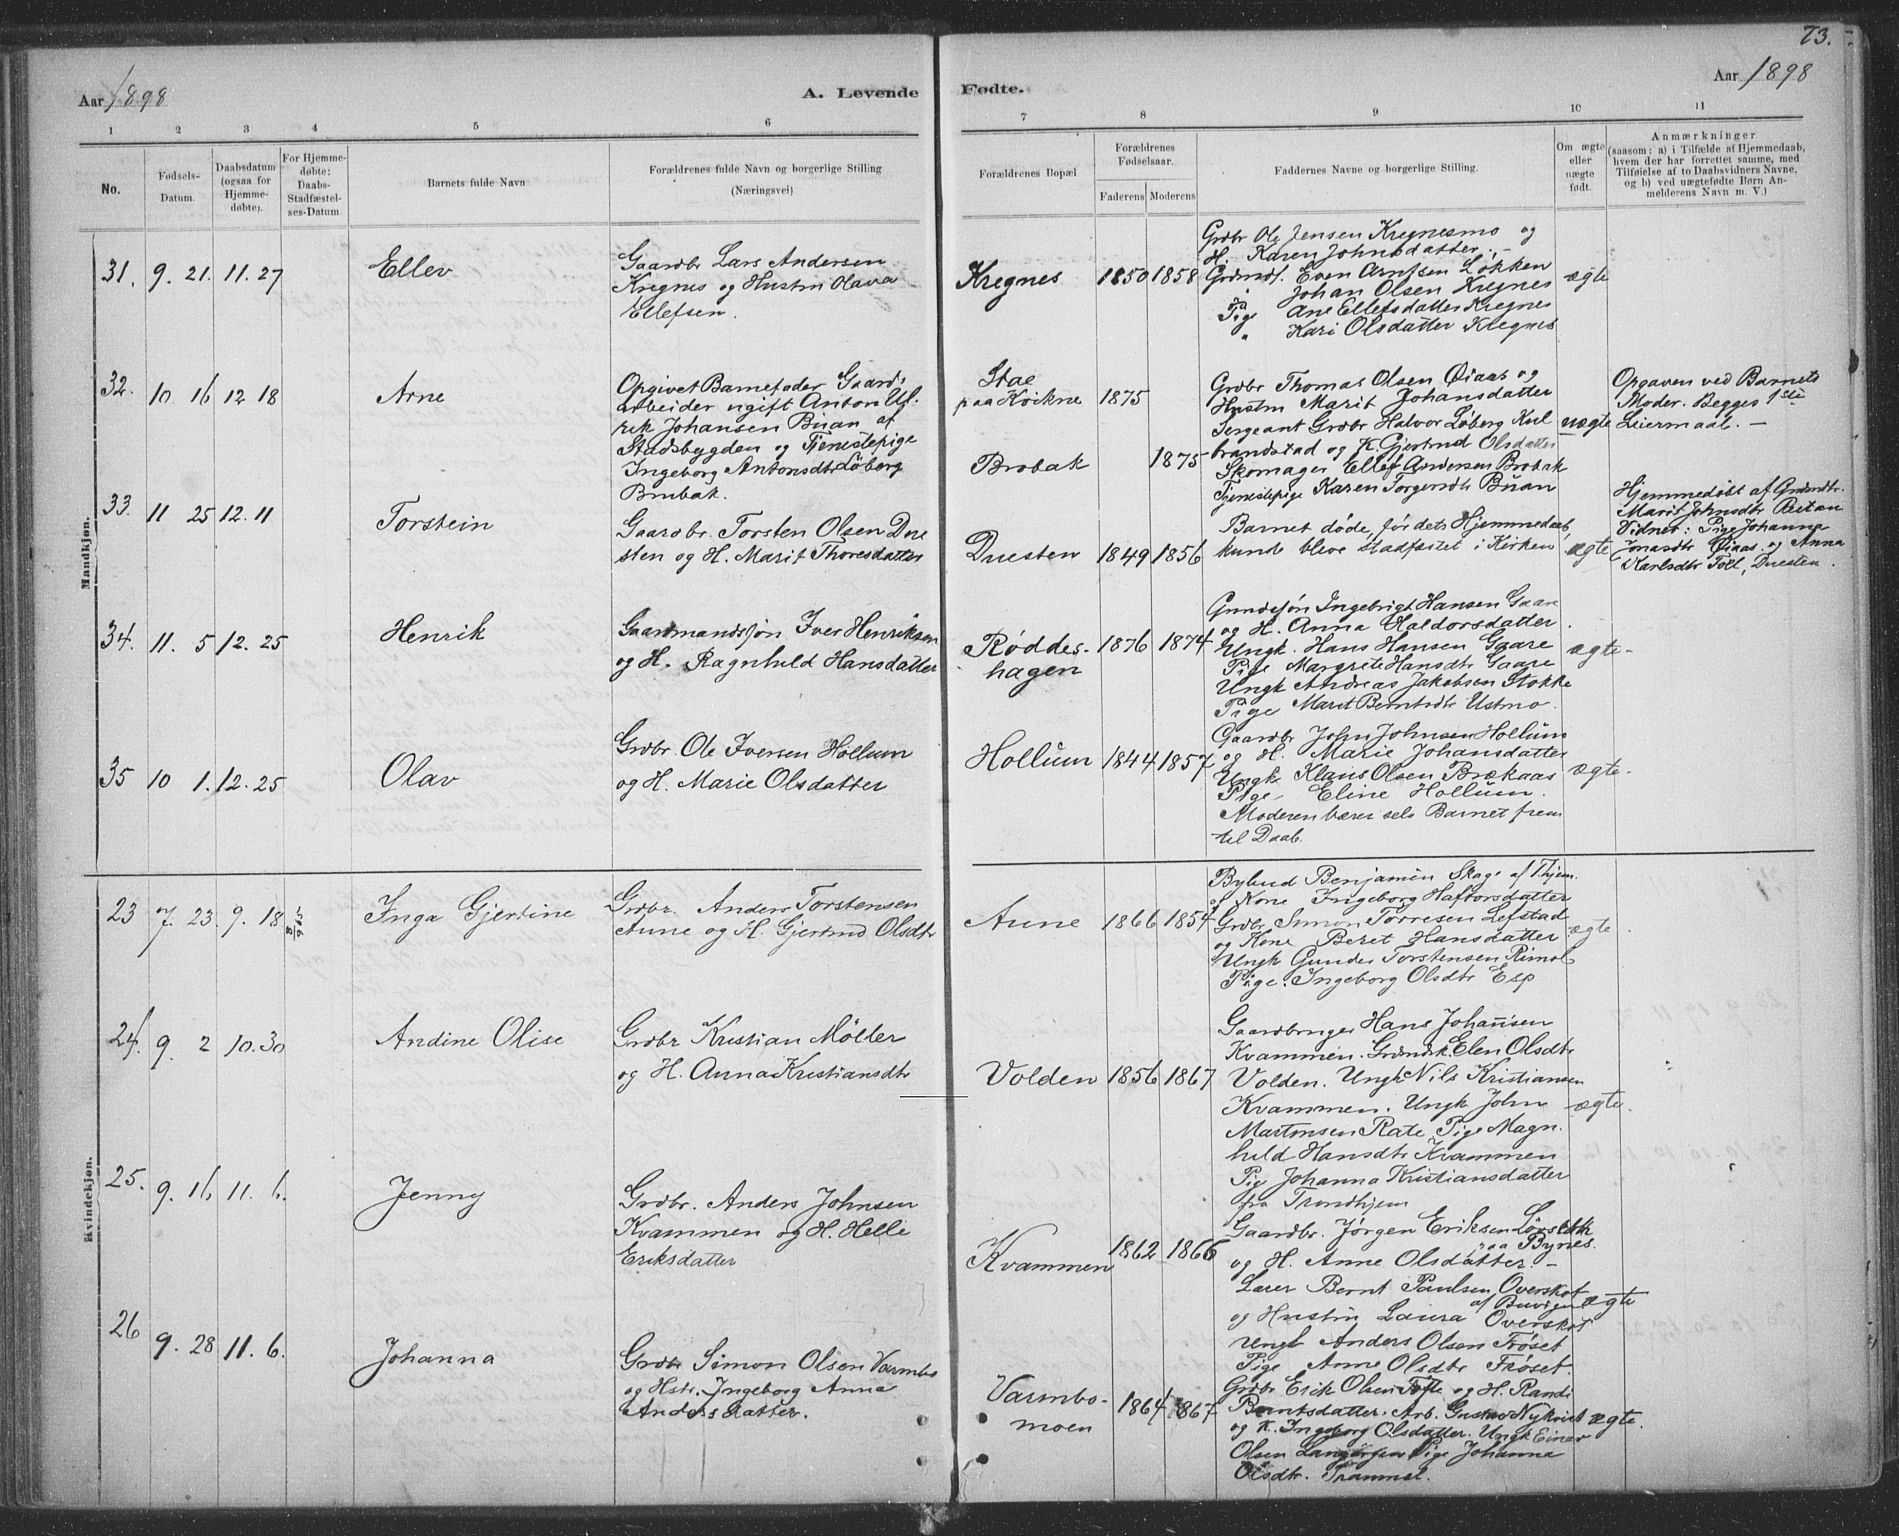 73.
Aar 1898
A. Levende
Fødte.
Aar 1898
1 2 3 4 5 6 7 8 9 10 11
No.
Fødsels-
Datum.
Daabsdatum
(ogsaa for
Hjemme-
døbte).
For Hjemme-
døbte:
Daabs-
Stadfæstel-
ses-Datum
Barnets fulde Navn
Forældrenes fulde Navn og borgerlige Stilling
(Næringsvei)
Forældrenes Bopæl
Forældrenes
Fødselsaar.
Faderens Moderens
Faddernes Navne og borgerlige Stilling.
Om ægte
eller
uægte
født.
Anmærkninger
(saasom: a) i Tilfælde af Hjemmedaab,
hvem der har forrettet samme, med
Tilføielse af to Daabsvidners Navne,
og b) ved uægtefødte Børn An-
melderens Navn m. V.)
Mandkjøn.
31. 9. 21. 11. 27
Ellev
Gaardbr Lars Andersen
Kregnes og Hustru Olava
Ellefsen.
Kregnes 1850 1858
Grdbr Ole Jensen Kregnesmo og
H. Karen Johnsdatter. -
Grdmdf. Even Arntsen Løkken
" Johan Olsen Kregnes
Pige Ane Ellefsdatter Kregnes
" Kari Olsdatter Kregnes
ægte
32. 10 16 12 18
Arne
Opgivet Barnefader Gaard-
arbeider ugift Anton Ul-
rik Johansen Buan af
Stadsbygden og Tjenestepige
Ingeborg Antonsdtr Løberg
Brubak.
Stae
paa Kvikne 1875
Brobak 1875
Grdbr Thomas Olsen Øiaas og
Hustru Marit Johansdatter
Sergeant Grdbr Halvor Løberg Kul
brandstad og K. Gjertrud Olsdatter
Skomager Ellef Andersen Brobak
Tjenestepige Karen Torgersdtr Buan
uægte
Opgaven ved Barnets
Moder. Begges 1ste
Leiermaal. -
33. 11 25 12. 11
Torstein
Gaardbr. Torsten Olsen Due
sten og H. Marit Thoresdatter
Duesten 1849 1856
Barnet døde, før dets Hjemmedaab
kunde bleve stadfæstet i Kirken
ægte
Hjemmedøbt af Grdmdk.
Marit Johnsdtr
Vidner: Pige Johanna
Jonasdtr Øiaas og Anna
Karlsdtr, Duesten.
34. 11. 5 12. 25
Henrik
Gaardmandssøn Iver Henriksen
og H. Ragnhild Hansdatter
Røddes-
hagen 1876 1874
Ingebrigt Hansen Gaare
og H. Anna Haldorsdatter.
Ungk. Hans Hansen Gaare
Pige Margrete Hansdtr Gaare
Ungk Andreas Jakobsen Stokke
Pige Marit Berntsdtr Ustmo.
ægte-
35 10 1. 12. 25
Olav
Grdbr. Ole Iversen Hollum
og H. Marie Olsdatter
Hollum 1844 1857
Gaardbr John Johnsen Hollum
og H. Marie Johansdatter
Ungk Klaus Olsen Brækaas
Pige Eline Hollum.
Moderen bærer selv Barnet frem
til Daab.
ægte.
Kvindekjøn.
23 7. 23. 9. 18
Inga Gjertine
Grdbr. Anders Torstensen
Aune og H. Gjertrud Olsdtr
Aune 1866 1854
Bybud Benjamin Skage af Thjem.
og Kone Ingeborg Haftorsdatter
Grdbr Simon Torresen Lefstad
og Kone Beret Hansdatter
Ungk Gunder Torstensen Rimol
Pige. Ingeborg Olsdtr Esp
ægte.
24. 9. 2 10. 30
Andine Olise
Grdbr Kristian Møller
og H. Anna Kristiansdtr
Volden 1856 1867
Gaardbruger Hans Johansen
Kvammen. Grdmdk. Elen Olsdtr
Volden. Ungk Nils Kristiansen
Kvammen. Ungk John
Martinsen Rate. Pige Magn-
hild Hansdtr Kvammen
Pige Johanna Kristiansdatter
fra Trondhjem
ægte.
25. 9. 16 11. 6.
Jenny
Grdbr. Anders Johnsen
Kvammen og H. Helle
Eriksdatter
Kvammen 1862 1866
Gaardbr. Jørgen Eriksen
paa Bynes.
og H. Anne Olsdatter. -
Lærer Bernt Paulsen Overskot
af Buvigen
og Hustru Laura Overskot
Ungk Anders Olsen Frøset
Pige Anne Olsdtr Frøset.
ægte
26 9. 28 11. 6.
Johanna
Grdbr Simon Olsen Varmbo
og Hstr. Ingeborg Anna
Andersdatter.
Varmbo-
moen 1864 1867
Grdbr Erik Olsen Tofte og H. Randi
Berntsdatter. Arb. Gustav Nykvist
og K. Ingeborg Olsdatter. Ungk Einar
Olsen Pige Johanna
Olsdtr. Trammel.
ægte.